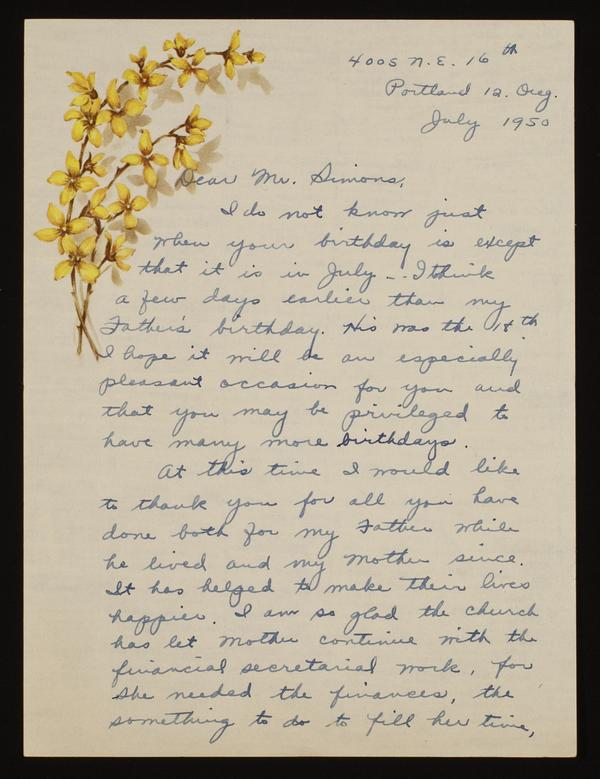 4005 N.E. 16th
Portland 12. Oreg.
July 1950
Dear Mr. Simons,
I do not know just
when your birthday is except
that it is in July -.. I think
a few days earlier than my
Father's birthday. His was the 18th
I hope it will be an especially
pleasant occasion for you and
that you may be privileged to
have many more birthdays.
At this time I would like
to thank you for all you have
done both for my Father while
he lived and my Mother since.
It has helped to make their lives
happier. I am so glad the church
has let Mother continue with the
financial secretarial work, for
she needed the finances, the
something to do to fill her time,